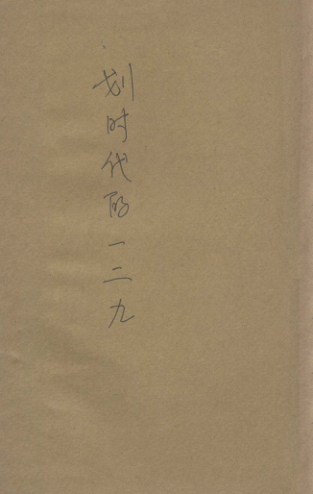 划时代的一二九